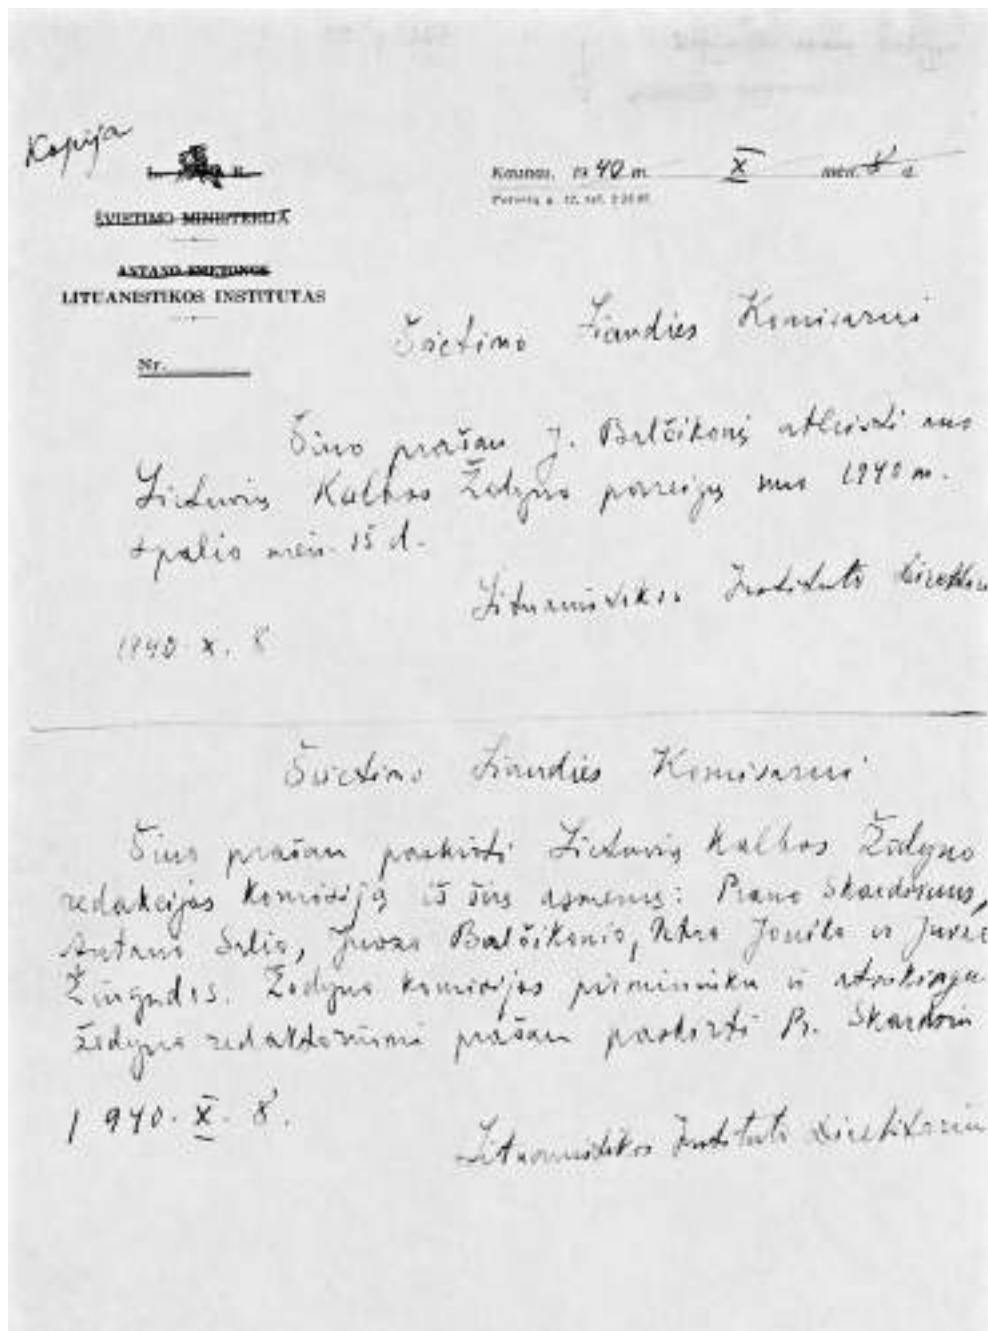 Kopija
ŠVIETIMO MINISTERIJA
ANTANO SMETONOS
LITUANISTIKOS INSTITUTAS
Nr.
Kaunas, 1940 m. X mėn. 8 d.
Švietimo Liaudies Komisarui
Šiuo prašau J. Balčikonį atleisti nuo
Lietuvių Kalbos Žodyno pareigų nuo 1940 m.
spalio mėn. 15 d.
Lituanistikos Instituto Direktorius
1940. X. 8
Švietimo Liaudies Komisarui
Šiuo prašau paskirti Lietuvių Kalbos Žodyno
redakcijos komisiją iš šių asmenų: Prano Skardžiaus,
Antano Salio, Juozo Balčikonio, Petro Joniko ir Juozo
Žiugždos. Žodyno komisijos pirmininku ir atsakingu
žodyno redaktorium prašau paskirti Pr. Skardžių
1940. X. 8.
Lituanistikos Instituto Direktorius